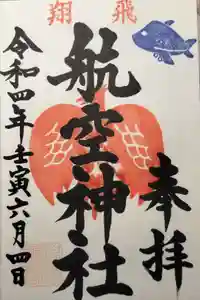 飛翔
奉拝
航空神社
令和四年壬寅六月四日